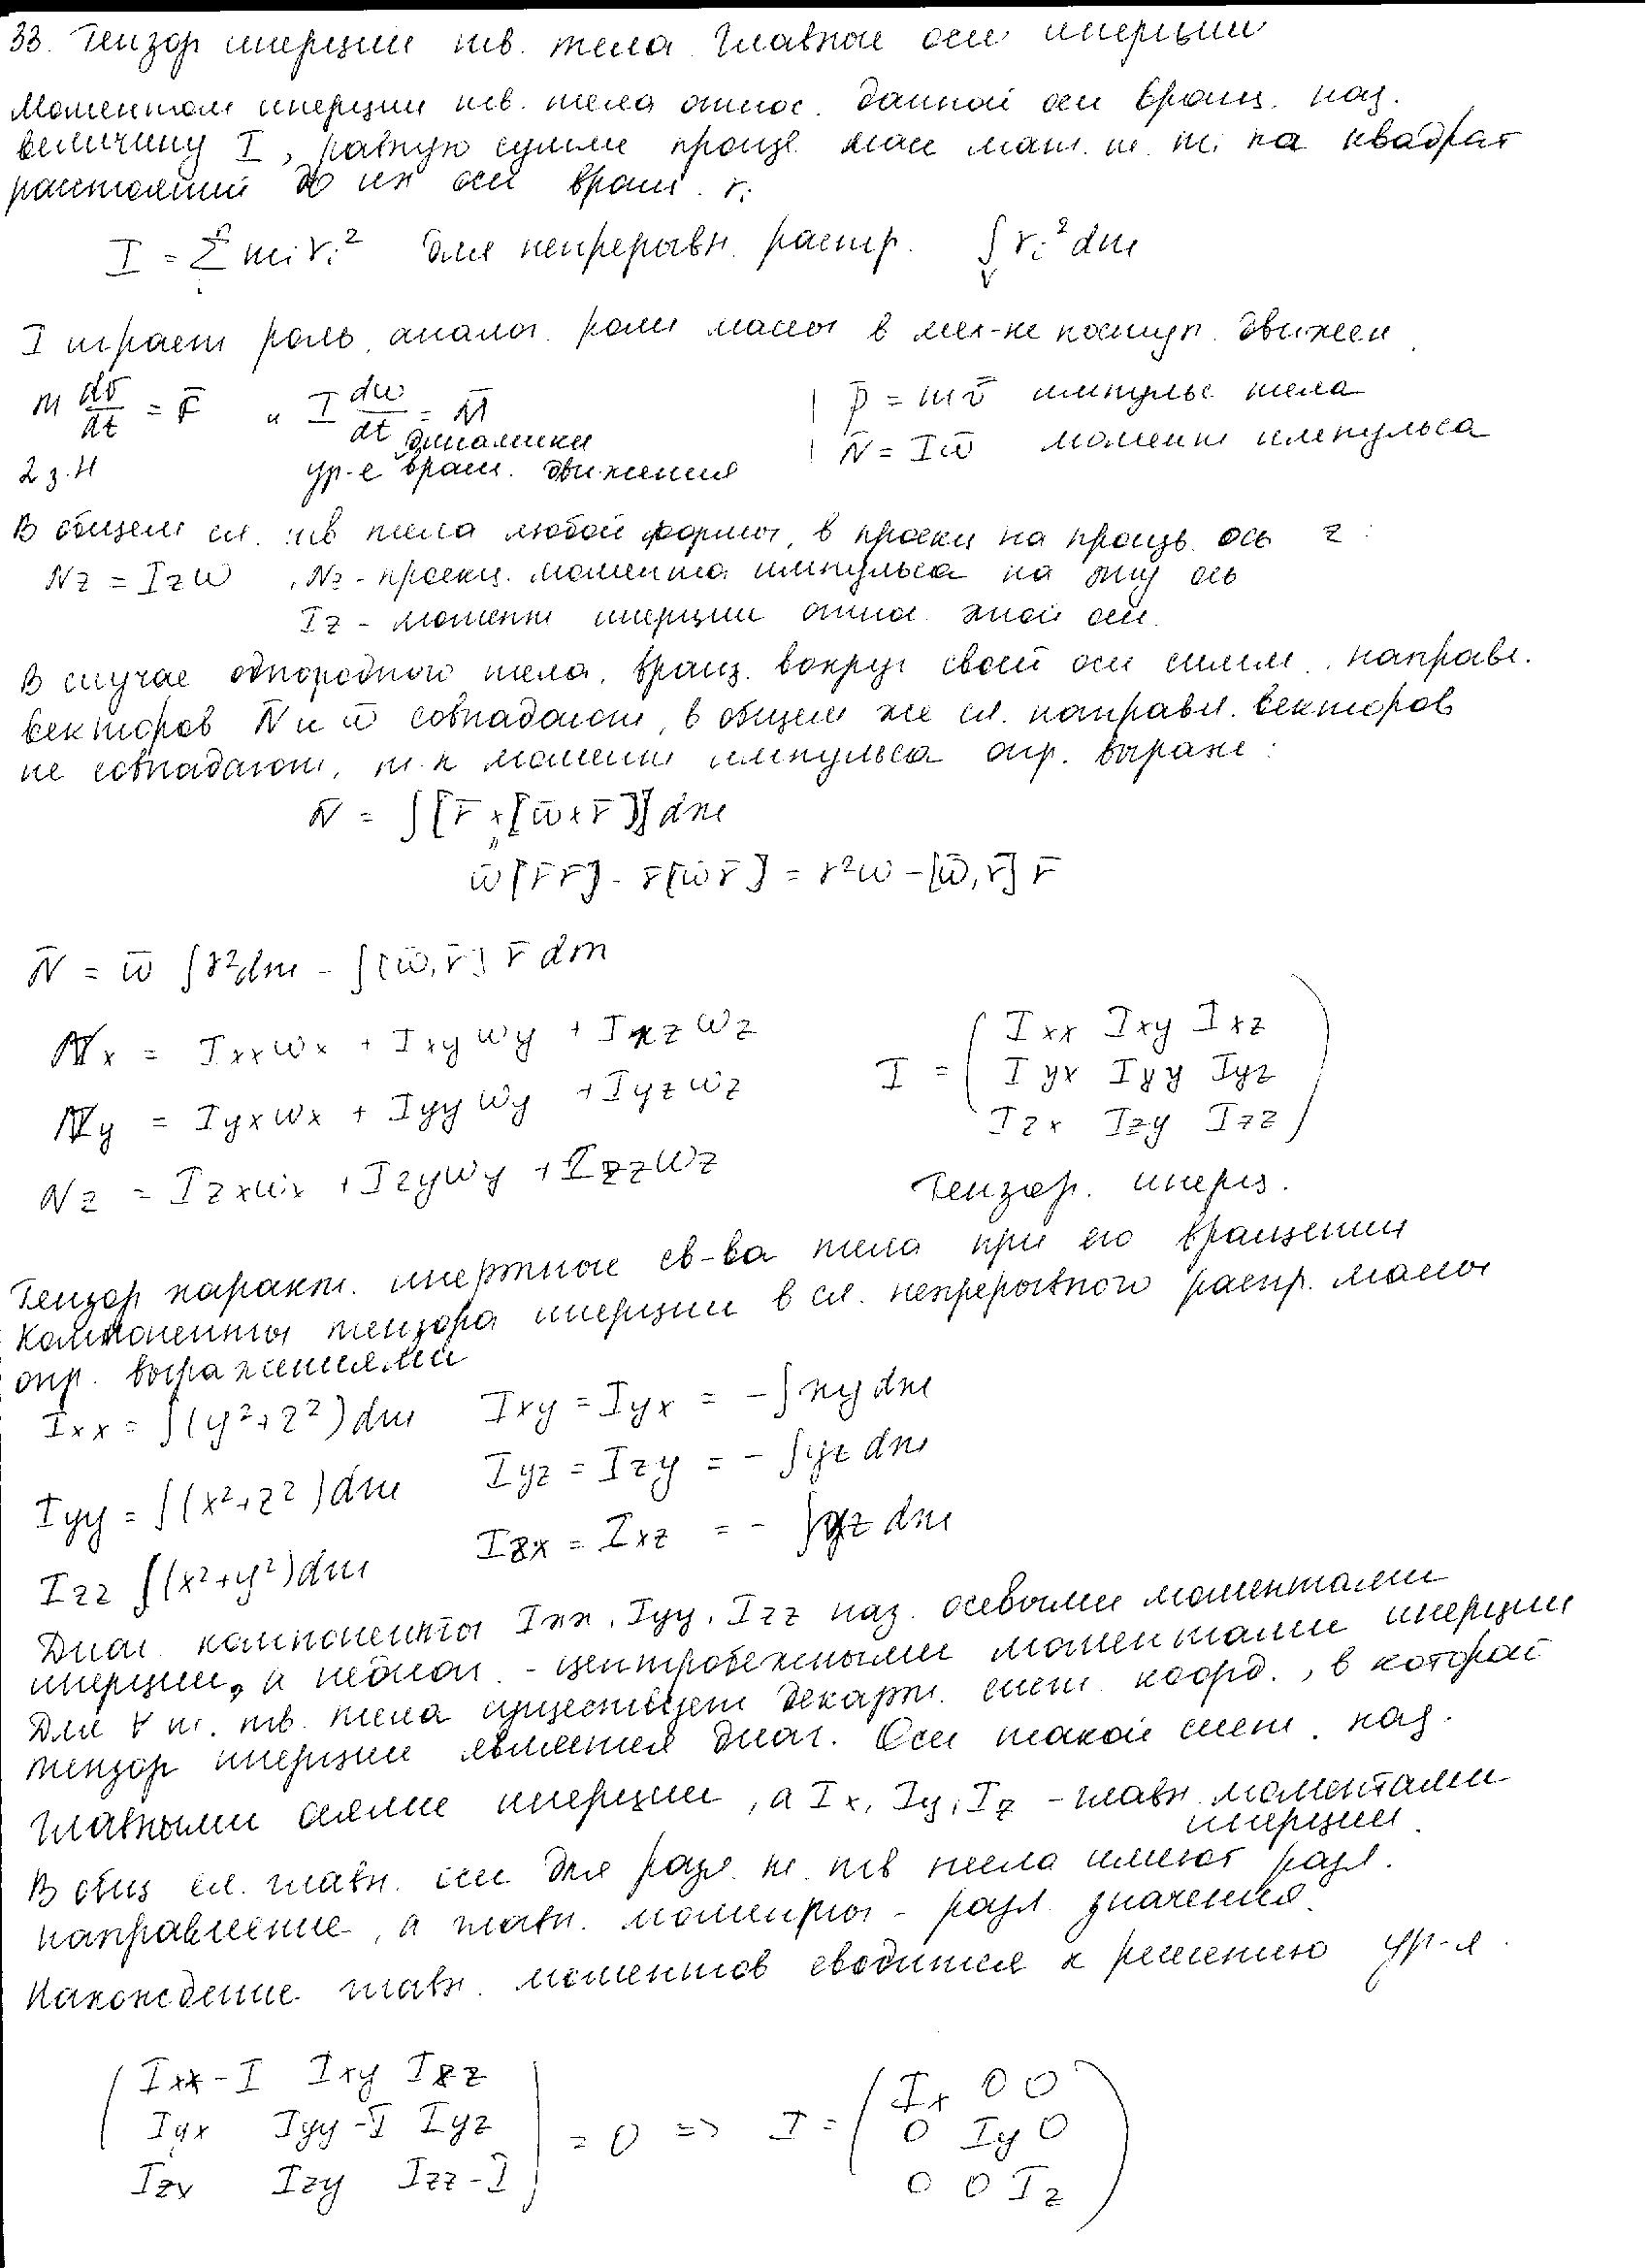 33. Тензор инерции тв. тела. Главные оси инерции
Моментом инерции тв. тела относ. данной оси вращ. наз.
величину I, равную сумме произв. масс мат. т. mᵢ на квадрат
расстояний до их оси вращ. rᵢ
I = Σ mᵢrᵢ² Для непрерывн. распр. ∫ rᵢ² dm
I играет роль, аналог. роли массы в мех-ке поступ. движен.
m dv̄/dt = F̄ и I dω/dt = M̄ | p̄ = mv̄ импульс тела
2 з. Н ур-е динамики вращ. движения | N̄ = Iω̄ момент импульса
В общем сл. тв тела любой формы, в проекц на произв. ось z:
Nz = Izω , Nz - проекц. момента импульса на эту ось
Iz - момент инерции относ. этой оси.
В случае однородного тела, вращ. вокруг своей оси симм., направл.
векторов N̄ и ω̄ совпадают, в общем же сл. направл. векторов
не совпадают, т.к момент импульса опр. выраж:
N̄ = ∫[r̄ × [ω̄ × r̄]] dm
ω̄[r̄r̄] - r̄[ω̄r̄] = r²ω - [ω̄, r̄] r̄
N̄ = ω̄ ∫r²dm - ∫[ω̄, r̄] r̄ dm
Nx = Ixxωx + Ixyωy + Ixzωz
Ny = Iyxωx + Iyyωy + Iyzωz
Nz = Izxωx + Izyωy + Izzωz
I = ( Ixx Ixy Ixz
Iyx Iyy Iyz
Izx Izy Izz )
Тензор. инерц.
Тензор характ. инертные св-ва тела при его вращении
Компоненты тензора инерции в сл. непрерывного распр. массы
опр. выражениями
Ixx = ∫(y²+z²)dm Ixy = Iyx = - ∫xy dm
Iyy = ∫(x²+z²)dm Iyz = Izy = - ∫yz dm
Izz ∫(x²+y²)dm Izx = Ixz = - ∫xz dm
Диаг. компоненты Ixx, Iyy, Izz наз. осевыми моментами
инерции, а недиаг. - центробежными моментами инерции
Для ∀ т. тв. тела существует декарт. сист. коорд., в которой
тензор инерции является диаг. Оси такой сист. наз.
главными осями инерции, а Ix, Iy, Iz - главн. моментами
инерции.
В общ сл. главн. оси для разл. т. тв тела имеют разл.
направление, а главн. моменты - разл. значения.
Нахождение главн. моментов сводится к решению ур-я.
( Ixx - I Ixy Ixz
Iyx Iyy - I Iyz
Izx Izy Izz - I ) = 0 => I = ( Ix 0 0
0 Iy 0
0 0 Iz )